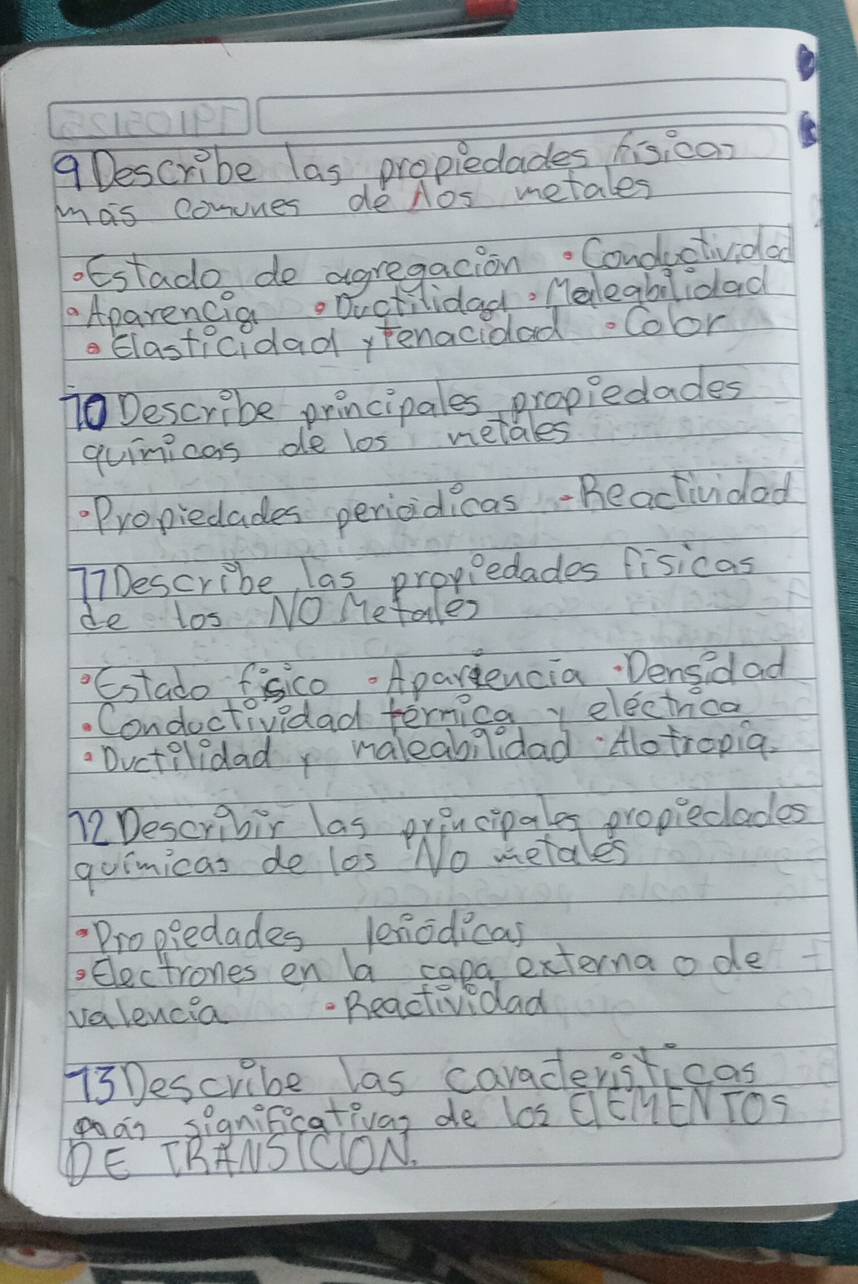 9 Describe las propiedades fisicas
más comunes de los metales
• Estado de agregación • Conductividad
• Aparencia • Ductilidad • Maleabilidad
• Elasticidad y tenacidad • Color
10 Describe principales propiedades
químicas de los metales
• Propiedades periódicas - Reactividad
11 Describe las propiedades físicas
de los NO Metales
• Estado físico • Apariencia • Densidad
• Conductividad térmica y eléctrica
• Ductilidad y maleabilidad • Alotropia.
12 Describir las principales propiedades
químicas de los No metales
• Propiedades periódicas
• Electrones en la capa externa o de
valencia • Reactividad
13 Describe las caracteristicas
más significativas de los ElEMENTOS
DE TRANSICION.